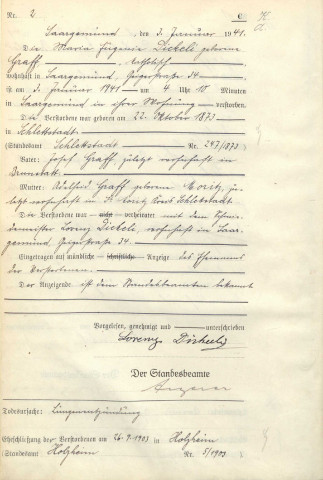 Nr. 2 C
Saargemünd, den 3. Januar 1941.
Die Maria Eugenie Dickeli geborene
Graff, katholisch
wohnhaft in Saargemünd, Geigerstraße 34
ist am 3. Januar 1941 um 4 Uhr 10 Minuten
in Saargemünd in ihrer Wohnung verstorben.
Die Verstorbene war geboren am 22. Oktober 1873
in Schlettstadt.
(Standesamt Schlettstadt Nr. 247/1873)
Vater: Josef Graff, zuletzt wohnhaft in
Mutter: Graff geborene Moritz, zu-
letzt wohnhaft in St. Kreis Schlettstadt.
Die Verstorbene war nicht verheiratet mit dem
meister Lorenz Dickeli, wohnhaft in Saar-
gemünd, Geigerstraße 34.
Eingetragen auf mündliche schriftliche Anzeige des Ehemannes
der Verstorbenen.
Der Anzeigende ist dem Standesbeamten bekannt
Vorgelesen, genehmigt und unterschrieben
Lorenz Dickeli
Der Standesbeamte
Todesursache: Lungenentzündung
Eheschließung der Verstorbenen am 26.9.1903 in Holzheim
(Standesamt Holzheim Nr. 5/1903)